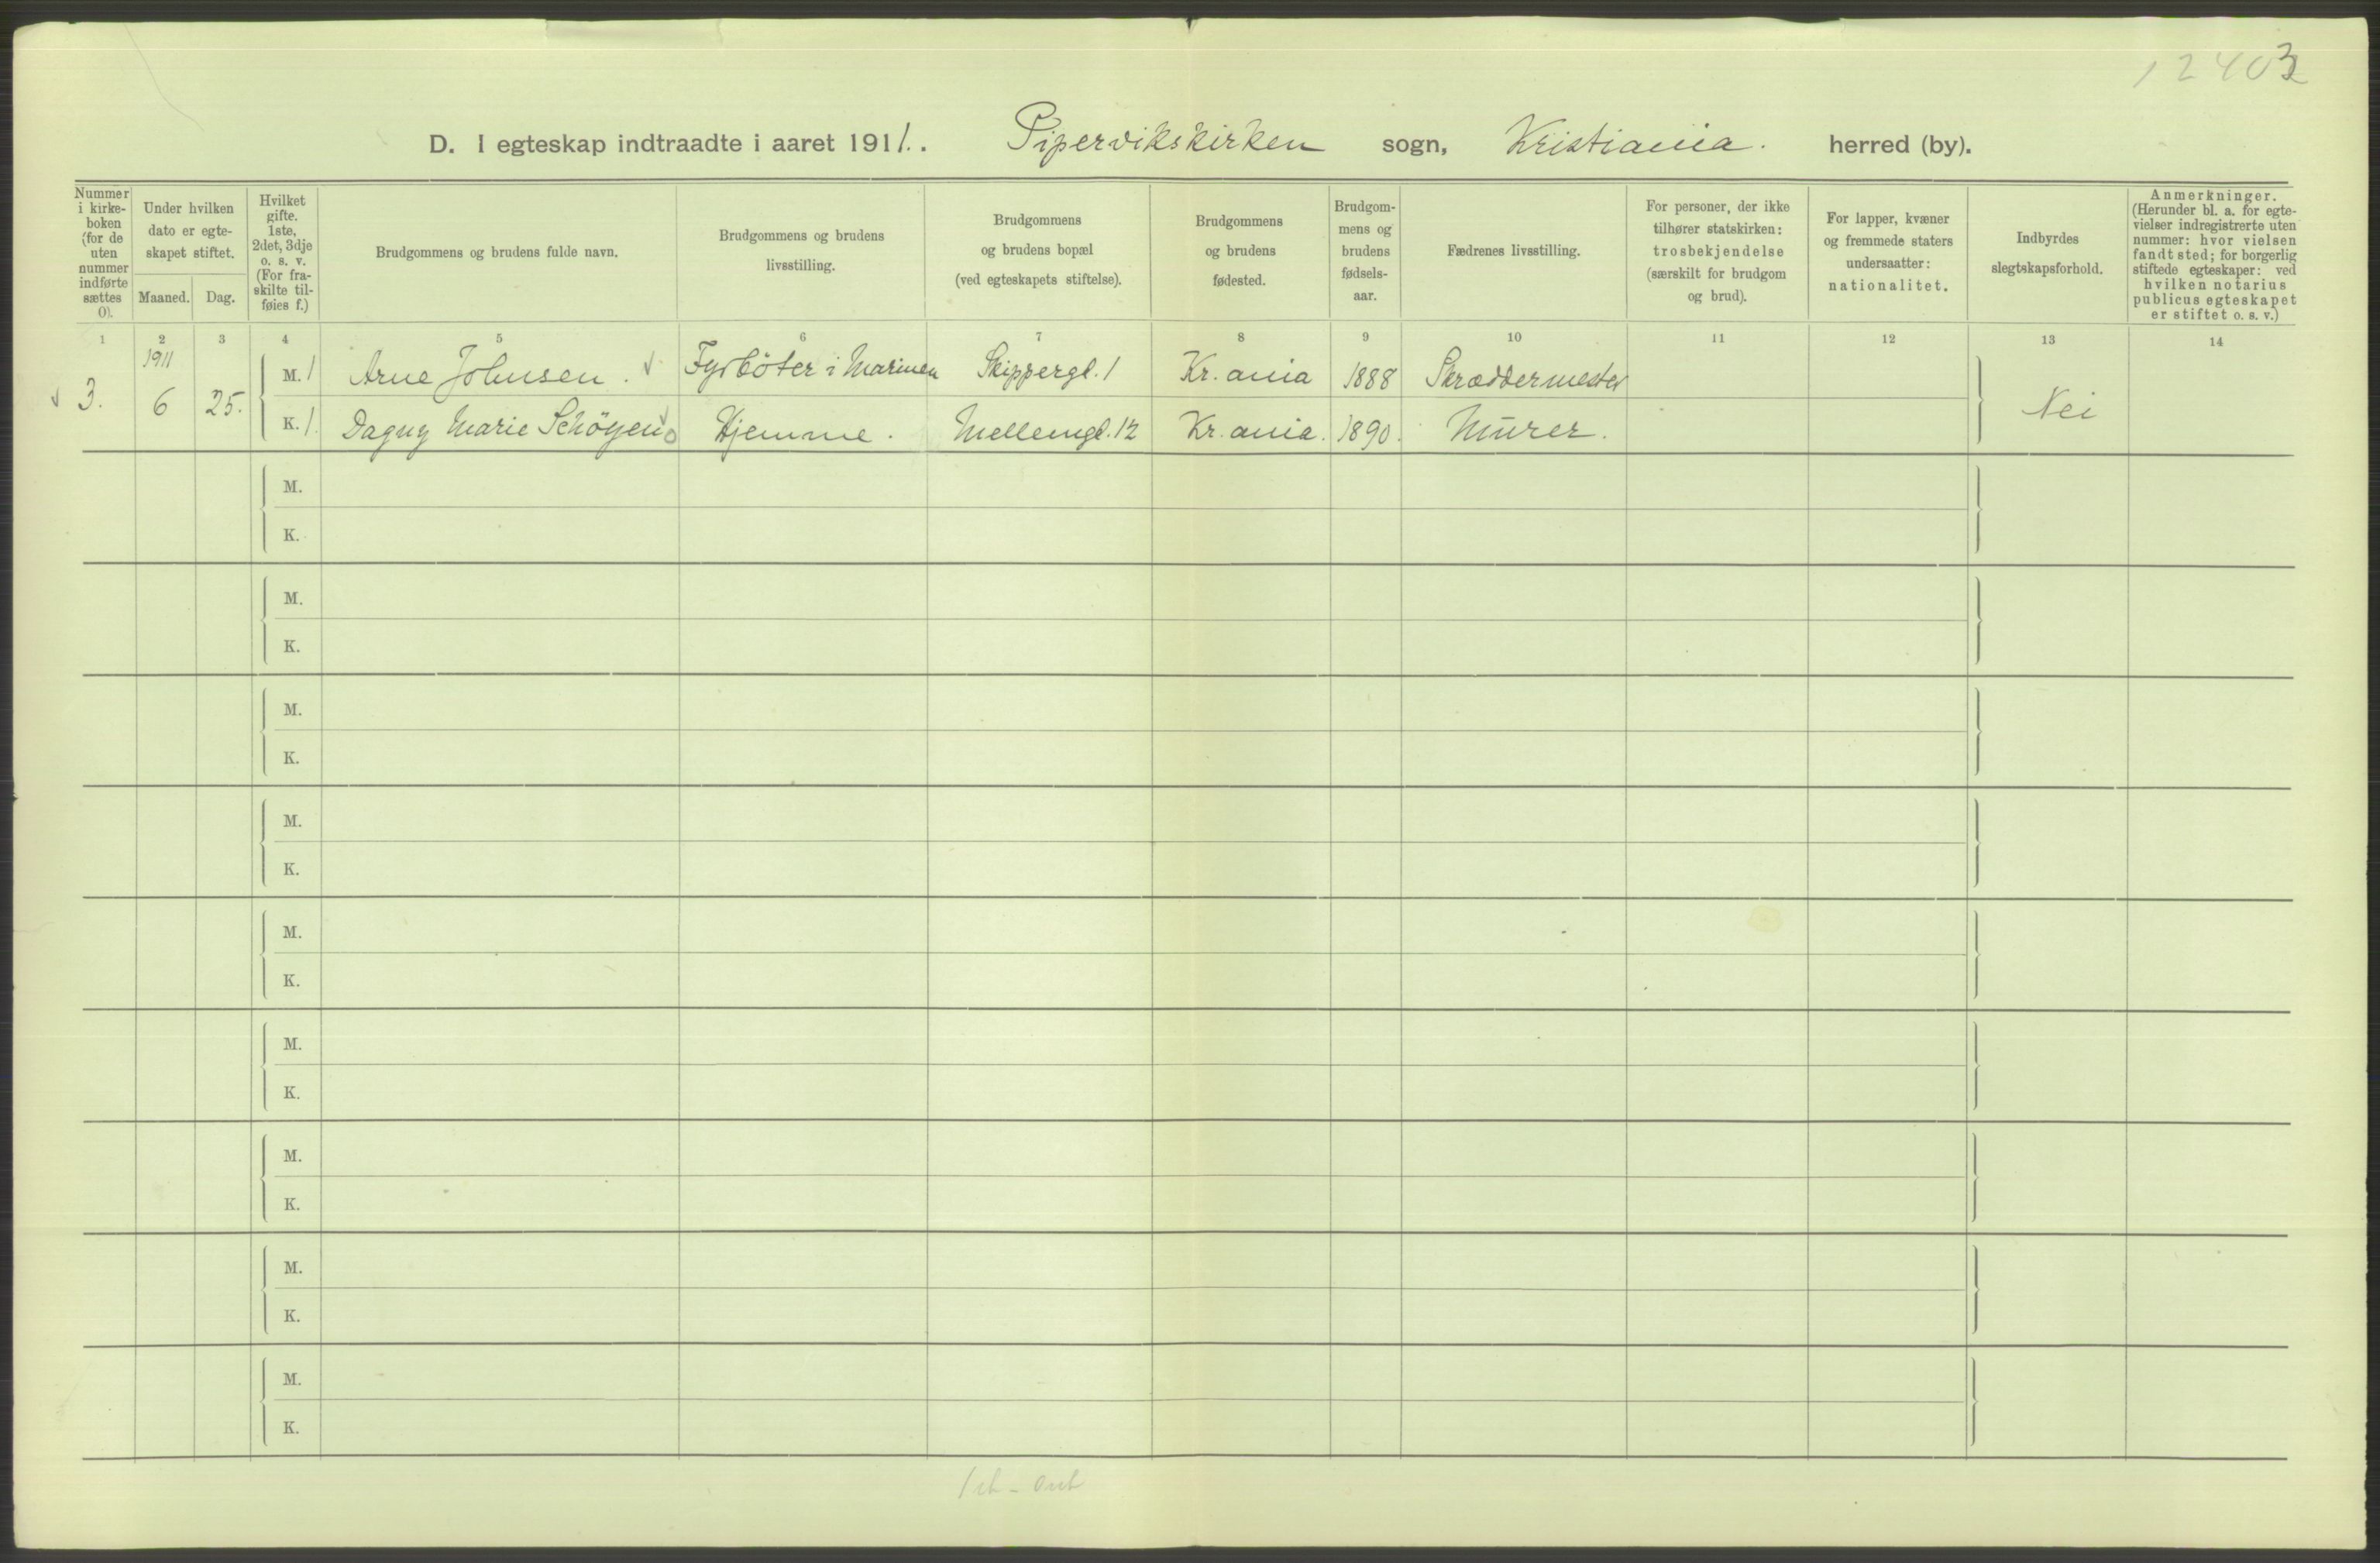 12403
D. I egteskap indtraadte i aaret 1911. Pipervikskirken sogn, Kristiania. herred (by).
Nummer i kirke-boken (for de uten nummer indførte sættes 0).
Under hvilken dato er egte-skapet stiftet.
Maaned. Dag.
Hvilket gifte. 1ste, 2det, 3dje o. s. v. (For fra-skilte til-føies f.)
Brudgommens og brudens fulde navn.
Brudgommens og brudens livsstilling.
Brudgommens og brudens bopæl (ved egteskapets stiftelse).
Brudgommens og brudens fødested.
Brudgom-mens og brudens fødsels-aar.
Fædrenes livsstilling.
For personer, der ikke tilhører statskirken: trosbekjendelse (særskilt for brudgom og brud).
For lapper, kvæner og fremmede staters undersaatter: nationalitet.
Indbyrdes slegtskapsforhold.
Anmerkninger. (Herunder bl. a. for egte-vielser indregistrerte uten nummer: hvor vielsen fandt sted; for borgerlig stiftede egteskaper: ved hvilken notarius publicus egteskapet er stiftet o. s. v.)
1 2 3 4 5 6 7 8 9 10 11 12 13 14
1911
3. 6 25.
M. 1 Arne Johnsen. Fyrböter i Marinen Skippergt. 1 Kr.ania 1888 Skræddermester
K. 1. Dagny Marie Schöyen Hjemme. Mellemgt. 12 Kr.ania. 1890. Murer.
Nei
M.
K.
M.
K.
M.
K.
M.
K.
M.
K.
M.
K.
M.
K.
M.
K.
M.
K.